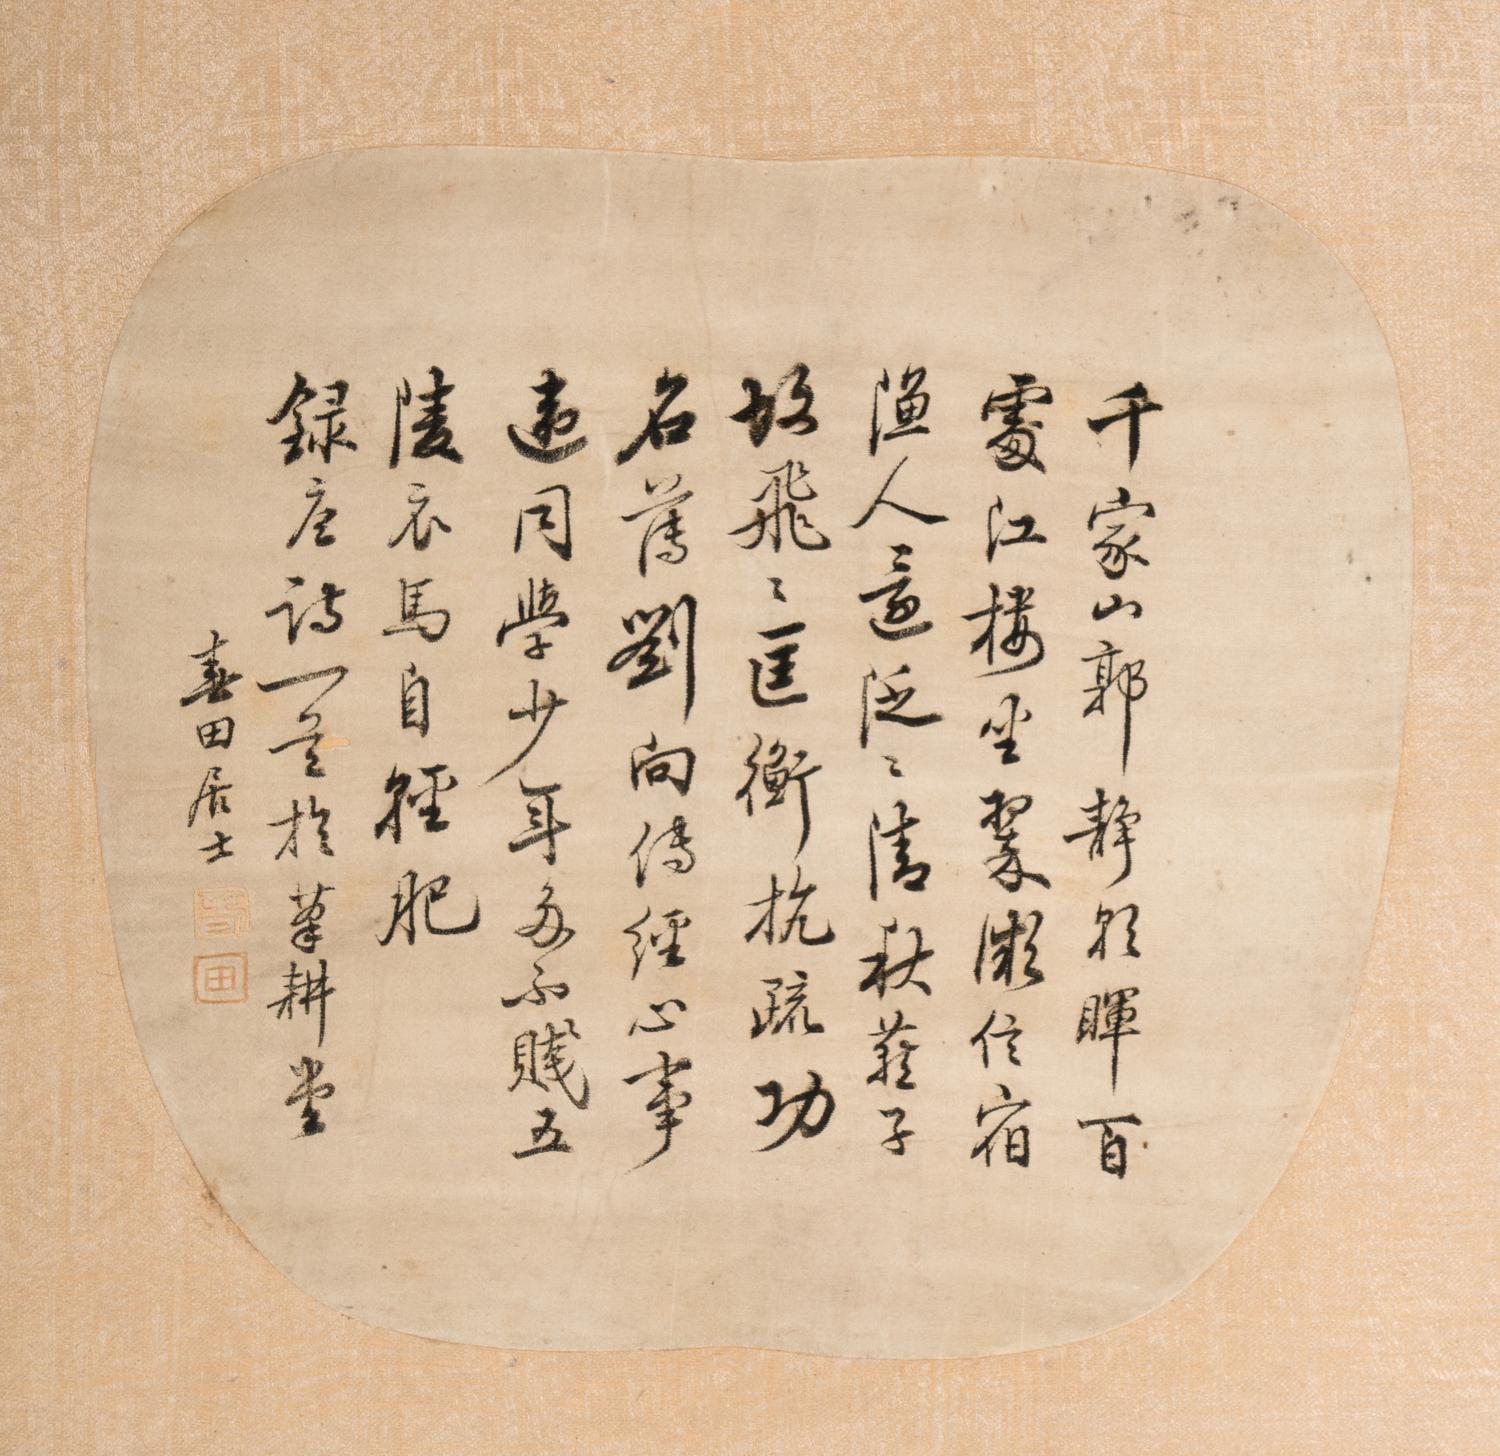 千家山郭靜朝暉百
處江樓坐翠微信宿
漁人還泛〻清秋燕子
故飛〻匡衡抗疏功
名薄劉向傳經心事
違同學少年多不賤五
陵衣馬自輕肥
錄唐詩一首於筆耕堂
田居士
田